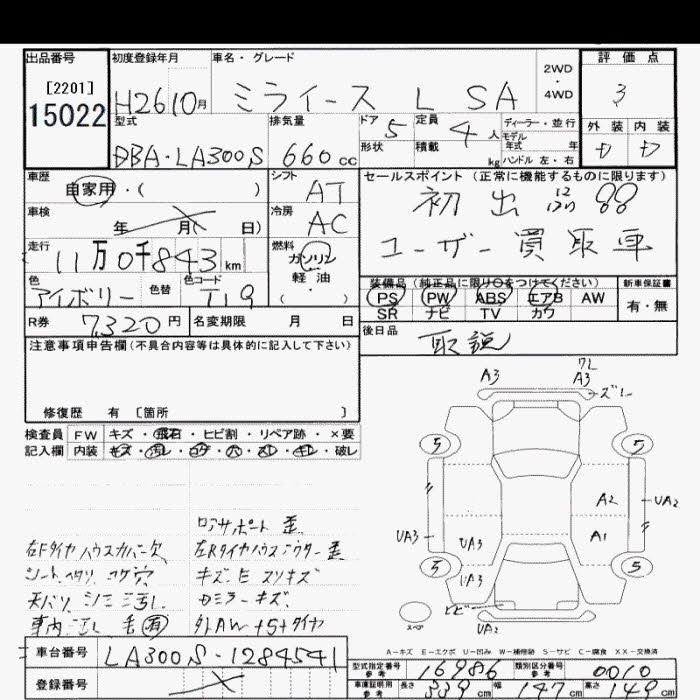 出品番号 初度登録年月 車名・グレード 2WD・4WD 評価点
[2201]
15022 H26 10月 ミライース L SA 3
型式 排気量 ドア 定員 ディーラー・並行 外装 内装
DBA・LA300S 660cc 5 4人 モデル年式 年
形状 積載 kg ハンドル 左・右
車歴 シフト セールスポイント (正常に機能するものに限ります)
自家用・( ) AT 初出
車検 冷房
年 月 日) AC ユーザー買取車
走行 燃料
11万0千843km ガソリン
軽油
・( )
色 色替 色コード 装備品 (純正品に限り○をつけてください) 新車保証書
アイボリー T19 PS PW ABS エアB AW 有・無
SR ナビ TV カワ
R券 7,320円 名変期限 月 日 後日品
取説
注意事項申告欄(不具合内容等は具体的に記入して下さい)
修復歴 有 〔箇所 〕
検査員 FW キズ・飛石・ヒビ割・リペア跡・×要
記入欄 内装 キズ・汚レ・コゲ・穴・スレ・キレ・破レ
コアサポート歪
右Fタイヤハウスカバー欠 右Rタイヤハウスアウター歪
シートヘタリ コゲ穴 キズ、E スリキズ
天バリ シミ 汚レ DミラーキズL
車内 汚レ 舌 有 外AW+S+タイヤ
A3 ワレ A3 ズレ
5 5
A2 UA2
UA3 UA3 A1
5 UA3 5
スペ サビ UA2
A-キズ E-エクボ U-凹み W-補修跡 S-サビ C-腐食 XX-交換済
車台番号 LA300S-1284541 型式指定番号 参考 16986 類別区分番号 参考 0010
登録番号 車庫証明用 参考 長さ 339cm 幅 147cm 高さ 149cm